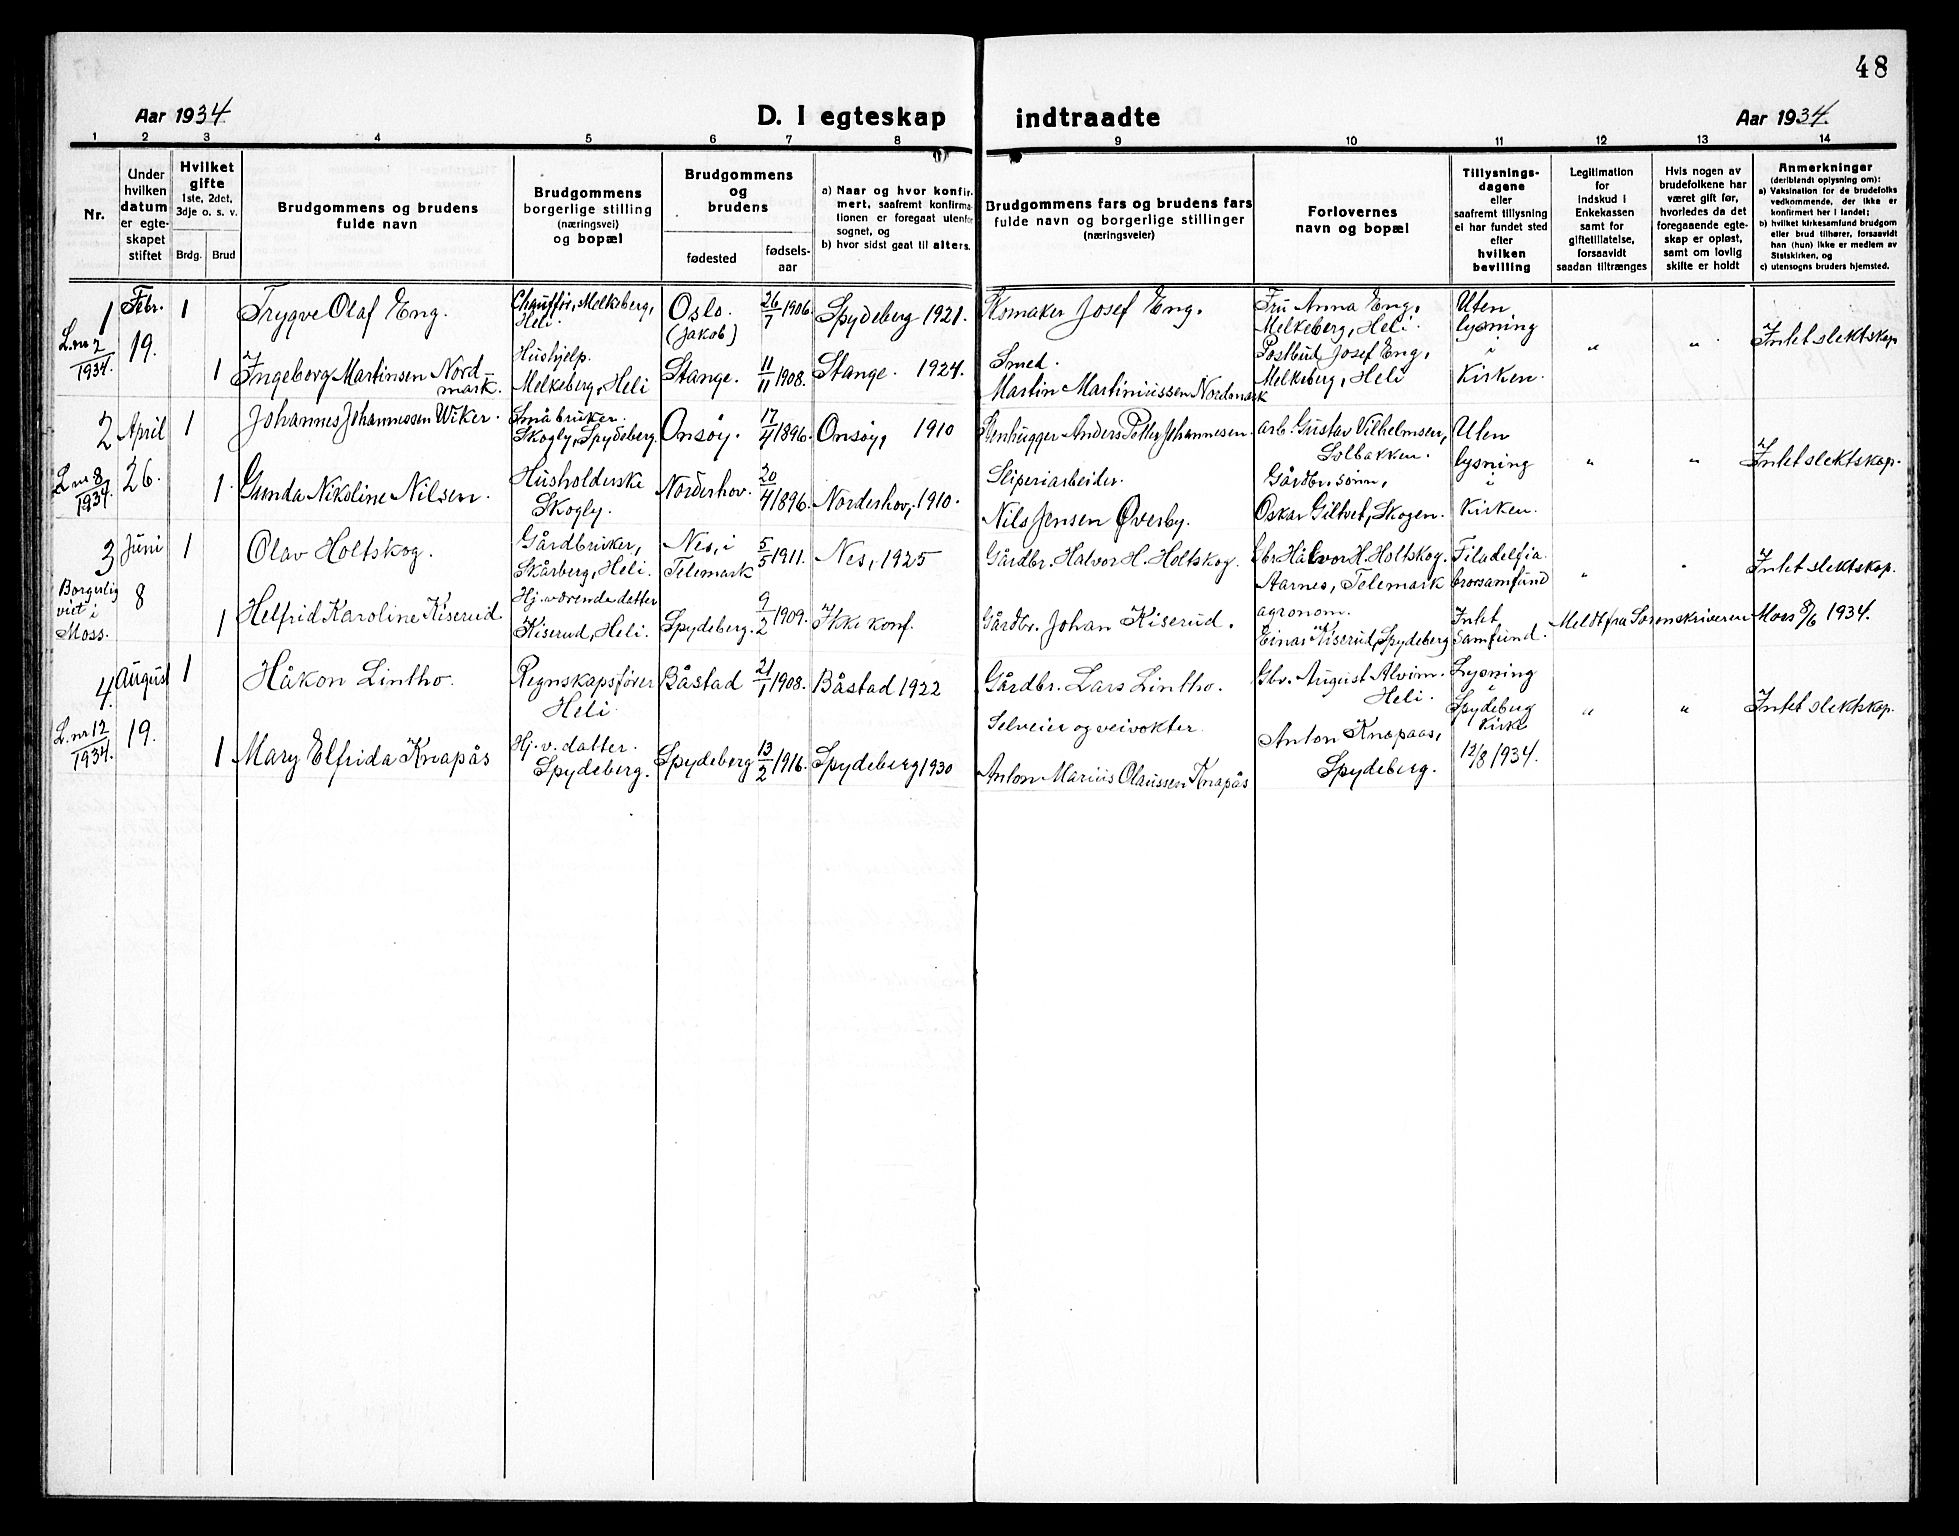 48
Aar 1934
D. I egteskap indtraadte
Aar 1934.
1 2 3 4 5 6 7 8 9 10 11 12 13 14
Nr.
Under
hvilken
datum
er egte-
skapet
stiftet
Hvilket
gifte
1ste, 2det,
3dje o. s. v.
Brdg. Brud
Brudgommens og brudens
fulde navn
Brudgommens
borgerlige stilling
(næringsvei)
og bopæl
Brudgommens
og
brudens
fødested
fødsels-
aar
a) Naar og hvor konfir-
mert, saafremt konfirma-
tionen er foregaat utenfor
sognet, og
b) hvor sidst gaat til alters.
Brudgommens fars og brudens fars
fulde navn og borgerlige stillinger
(næringsveier)
Forlovernes
navn og bopæl
Tillysnings-
dagene
eller
saafremt tillysning
ei har fundet sted
efter
hvilken
bevilling
Legitimation
for
indskud i
Enkekassen
samt for
giftetillatelse,
forsaavidt
saadan tiltrænges
Hvis nogen av
brudefolkene har
været gift før,
hvorledes da det
foregaaende egte-
skap er opløst,
samt om lovlig
skifte er holdt
Anmerkninger
(deriblandt oplysning om):
a) Vaksination for de brudefolks
vedkommende, der ikke er
konfirmert her i landet;
b) hvilket kirkesamfund brudgom
eller brud tilhører, forsaavidt
han (hun) ikke er medlem av
Statskirken, og
c) utensogns bruders hjemsted.
1
L.nr 2
/1934.
Febr.
19.
1
Trygve Olaf Eng.
Chauffør, Melkeberg,
Heli.
Oslo.
(Jakob)
26/7 1906.
Spydeberg 1921.
Skomaker Josef Eng.
Fru Anna Eng,
Melkeberg, Heli.
Uten
lysning
i
Kirken.
" "
Intet slektskap
1
Ingeborg Martinsen Nord-
mark.
Hushjelp.
Melkeberg, Heli
Stange.
11/11 1908.
Stange. 1924.
Smed.
Martin Martiniussen Nordmark
Postbud Josef Eng,
Melkeberg, Heli
2
L.nr 8
/1934.
April
26.
1
Johannes Johannessen Wiker.
Småbruker.
Skogly, Spydeberg.
Onsøy.
17/4 1896.
Onsøy, 1910
Stenhugger Anders Petter Johannesen.
arb. Gustav Vilhelmsen,
Solbakken.
Uten
lysning
i
Kirken.
" "
Intet slektskap.
1
Gunda Nikoline Nilsen.
Husholderske
Skogly.
Norderhov.
20/4 1896.
Norderhov, 1910.
Sliperiarbeider.
Nils Jensen Øverby.
Gårdbr.sønn,
Oskar Giltvet, Skogen.
3
Borgerlig
viet i
Moss.
Juni
8
1
Olav Holtskog.
Gårdbruker,
Skårberg, Heli.
Nes, i
Telemark
5/5 1911.
Nes, 1925
Gårdbr. Halvor H. Holtskog.
Gbr. Halvor H. Holtskog.
Aarnes, Telemark
Filadelfia
brorsamfund
" "
Intet slektskap.
1
Helfrid Karoline Kiserud
Hj. værende datter
Kiserud, Heli.
Spydeberg.
9/2 1909.
Ikke konf.
Gårdbr. Johan Kiserud.
agronom.
Einar Kiserud, Spydeberg
Intet
samfund.
Meldt fra Sorenskriveren Moss 8/6 1934.
4.
L.nr 12
/1934.
August
19.
1
Håkon Lintho.
Regnskapsfører
Heli
Båstad
21/1 1908.
Båstad 1922
Gårdbr. Lars Lintho.
Gbr. August Alvim.
Heli.
Lysning
i
Spydeberg
Kirke
12/8 1934.
" "
Intet slektskap.
1
Mary Elfrida Knapås
Hj. v. datter.
Spydeberg.
Spydeberg
13/2 1916.
Spydeberg 1930
Selveier og veivokter.
Anton Marius Olaussen Knapås
Anton Knapaas,
Spydeberg.